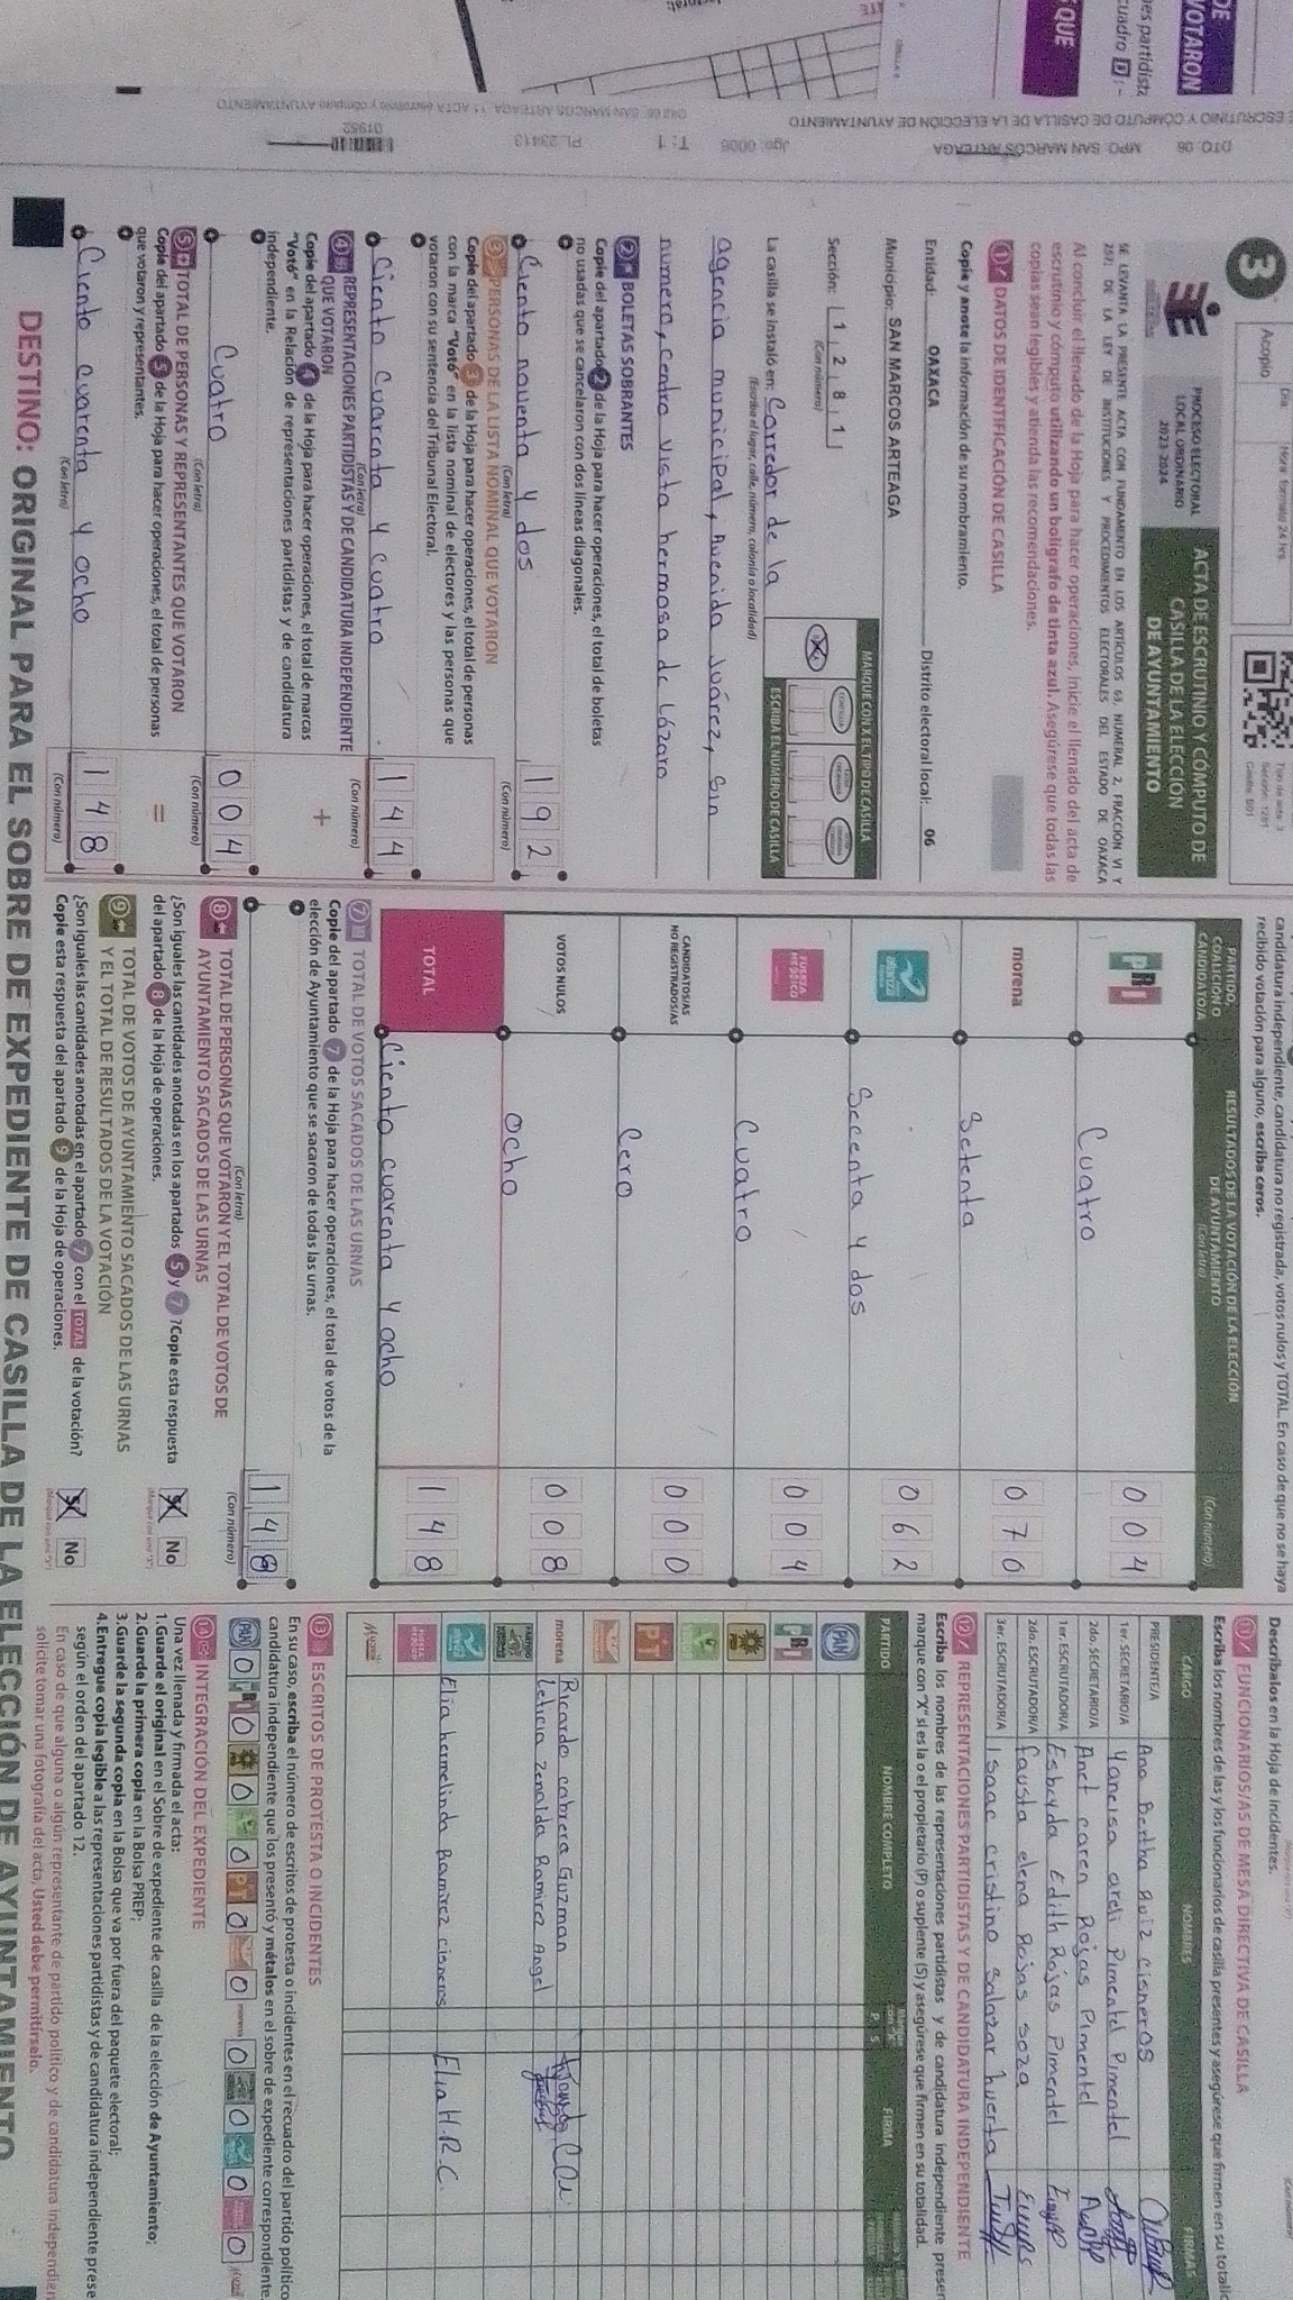 3
Acopio
PROCESO ELECTORAL
LOCAL ORDINARIO
2023-2024
ACTA DE ESCRUTINIO Y CÓMPUTO DE
CASILLA DE LA ELECCIÓN
DE AYUNTAMIENTO
SE LEVANTA LA PRESENTE ACTA CON FUNDAMENTO EN LOS ARTÍCULOS 63, NUMERAL 2, FRACCIÓN VI Y
257; DE LA LEY DE INSTITUCIONES Y PROCEDIMIENTOS ELECTORALES DEL ESTADO DE OAXACA
Al concluir el llenado de la Hoja para hacer operaciones, inicie el llenado del acta de
escrutinio y cómputo utilizando un bolígrafo de tinta azul. Asegúrese que todas las
copias sean legibles y atienda las recomendaciones.
1 DATOS DE IDENTIFICACIÓN DE CASILLA
Copie y anote la información de su nombramiento.
Entidad: OAXACA Distrito electoral local: 06
Municipio: SAN MARCOS ARTEAGA
Sección: 1 2 8 1
(Con número)
MARQUE CON X EL TIPO DE CASILLA
ESCRIBA EL NÚMERO DE CASILLA
La casilla se instaló en: Corredor de la
(Escriba el lugar, calle, número, colonia o localidad)
agencia municipal, Avenida Juárez, Sin
numero, centro vista hermosa de Lázaro
2 BOLETAS SOBRANTES
Copie del apartado 2 de la Hoja para hacer operaciones, el total de boletas
no usadas que se cancelaron con dos líneas diagonales.
Ciento noventa y dos 192
(Con letra) (Con número)
3 PERSONAS DE LA LISTA NOMINAL QUE VOTARON
Copie del apartado 3 de la Hoja para hacer operaciones, el total de personas
con la marca "Votó" en la lista nominal de electores y las personas que
votaron con su sentencia del Tribunal Electoral.
Ciento Cuarenta y Cuatro 144
(Con letra) (Con número)
4 REPRESENTACIONES PARTIDISTAS Y DE CANDIDATURA INDEPENDIENTE
QUE VOTARON
Copie del apartado 4 de la Hoja para hacer operaciones, el total de marcas
"Votó" en la Relación de representaciones partidistas y de candidatura
independiente.
+
Cuatro 004
(Con letra) (Con número)
5 TOTAL DE PERSONAS Y REPRESENTANTES QUE VOTARON
Copie del apartado 5 de la Hoja para hacer operaciones, el total de personas
que votaron y representantes.
=
Ciento cuarenta y ocho 148
(Con letra) (Con número)
candidatura independiente, candidatura no registrada, votos nulos y TOTAL. En caso de que no se haya
recibido votación para alguno, escriba ceros.
PARTIDO,
COALICIÓN O
CANDIDATO/A
RESULTADOS DE LA VOTACIÓN DE LA ELECCIÓN
DE AYUNTAMIENTO
(Con letra) (Con número)
PRI Cuatro 004
morena Setenta 070
Secenta y dos 062
FUERZA MÉXICO Cuatro 004
CANDIDATOS/AS
NO REGISTRADOS/AS
Cero 000
VOTOS NULOS ocho 008
TOTAL Ciento cuarenta y ocho 148
7 TOTAL DE VOTOS SACADOS DE LAS URNAS
Copie del apartado 7 de la Hoja para hacer operaciones, el total de votos de la
elección de Ayuntamiento que se sacaron de todas las urnas.
148
(Con letra) (Con número)
8 TOTAL DE PERSONAS QUE VOTARON Y EL TOTAL DE VOTOS DE
AYUNTAMIENTO SACADOS DE LAS URNAS
¿Son iguales las cantidades anotadas en los apartados 5 y 7 ?Copie esta respuesta
del apartado 8 de la Hoja de operaciones.
Sí No
9 TOTAL DE VOTOS DE AYUNTAMIENTO SACADOS DE LAS URNAS
Y EL TOTAL DE RESULTADOS DE LA VOTACIÓN
¿Son iguales las cantidades anotadas en el apartado 7 con el TOTAL de la votación?
Copie esta respuesta del apartado 9 de la Hoja de operaciones.
Sí No
Descríbalos en la Hoja de incidentes.
11 FUNCIONARIOS/AS DE MESA DIRECTIVA DE CASILLA
Escriba los nombres de las y los funcionarios de casilla presentes y asegúrese que firmen en su
CARGO NOMBRES FIRMAS
PRESIDENTE/A Ana Bertha Ruiz Cisneros
1er. SECRETARIO/A Yancisa areli Pimentel Pimentel
2do. SECRETARIO/A Anet caren Rojas Pimentel
1er. ESCRUTADOR/A Edith Rojas Pimentel
2do. ESCRUTADOR/A fausta elena Rojas soza
3er. ESCRUTADOR/A Isaac cristino Salazar huerta
12 REPRESENTACIONES PARTIDISTAS Y DE CANDIDATURA INDEPENDIENTE
Escriba los nombres de las representaciones partidistas y de candidatura independiente
marque con "X" si es la o el propietario (P) o suplente (S) y asegúrese que firmen en su totalidad.
PARTIDO NOMBRE COMPLETO P S FIRMA
PAN
PRI
PRD
PT
morena Ricardo cabrera Guzman
Leticia Zenaida Ramirez Angel
Elia hermelinda Ramirez cisneros Elia H.R.C.
FUERZA MÉXICO
13 ESCRITOS DE PROTESTA O INCIDENTES
En su caso, escriba el número de escritos de protesta o incidentes en el recuadro del partido político
candidatura independiente que los presentó y métalos en el sobre de expediente correspondiente.
PAN 0 PRI 0 0 0 PT 0 0 morena 0 0 0 0
14 INTEGRACIÓN DEL EXPEDIENTE
Una vez llenada y firmada el acta:
1.Guarde el original en el Sobre de expediente de casilla de la elección de Ayuntamiento;
2.Guarde la primera copia en la Bolsa PREP;
3.Guarde la segunda copia en la Bolsa que va por fuera del paquete electoral;
4.Entregue copia legible a las representaciones partidistas y de candidatura independiente
según el orden del apartado 12.
En caso de que alguna o algún representante de partido político y de candidatura
solicite tomar una fotografía del acta, Usted debe permitírselo.
DESTINO: ORIGINAL PARA EL SOBRE DE EXPEDIENTE DE CASILLA DE LA ELECCIÓN DE AYUNTAMIENTO
DE
VOTARON
QUE
cuadro D
ESCRUTINIO Y CÓMPUTO DE CASILLA DE LA ELECCIÓN DE AYUNTAMIENTO
DTO. 06 MPO. SAN MARCOS ARTEAGA
Jgo: 0006 T: 1
01952